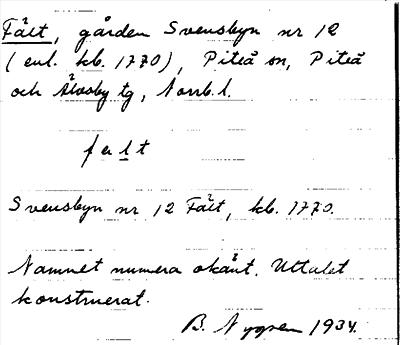 Fält, gården Svensbyn nr 12
(enl. kb. 1770), Piteå sn, Piteå
och Älvsby tg, Norrb. l.
fełt
Svensbyn nr 12 Fält, kb. 1770.
Namnet numera okänt. Uttalet
konstruerat.
B. Nygren 1934.